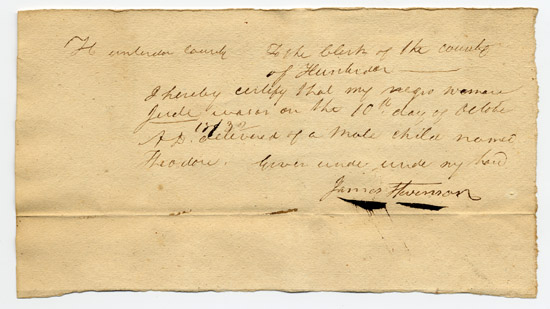 Hunterdon County To the Clerk of the county
of Hunterdon
I hereby certify that my negro woman
Jude was on the 10th day of Octobe
A D. delivered of a Male child named
Theodore. Given unde unde my hand
James